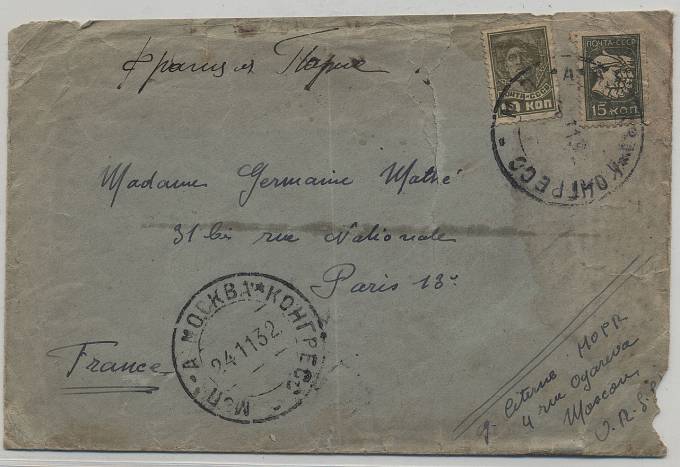 Франция Париж
ПОЧТА·СССР
КОП
ПОЧТА-СССР
15 КОП.
КОНГРЕСС
Madame Germaine Mathé
31 bis rue Nationale
Paris 13e
France
А МОСКВА*КОНГРЕСС
24 11 32
g. Citerne MOPR
4 rue Ogareva
Moscou
U.R.S.S.